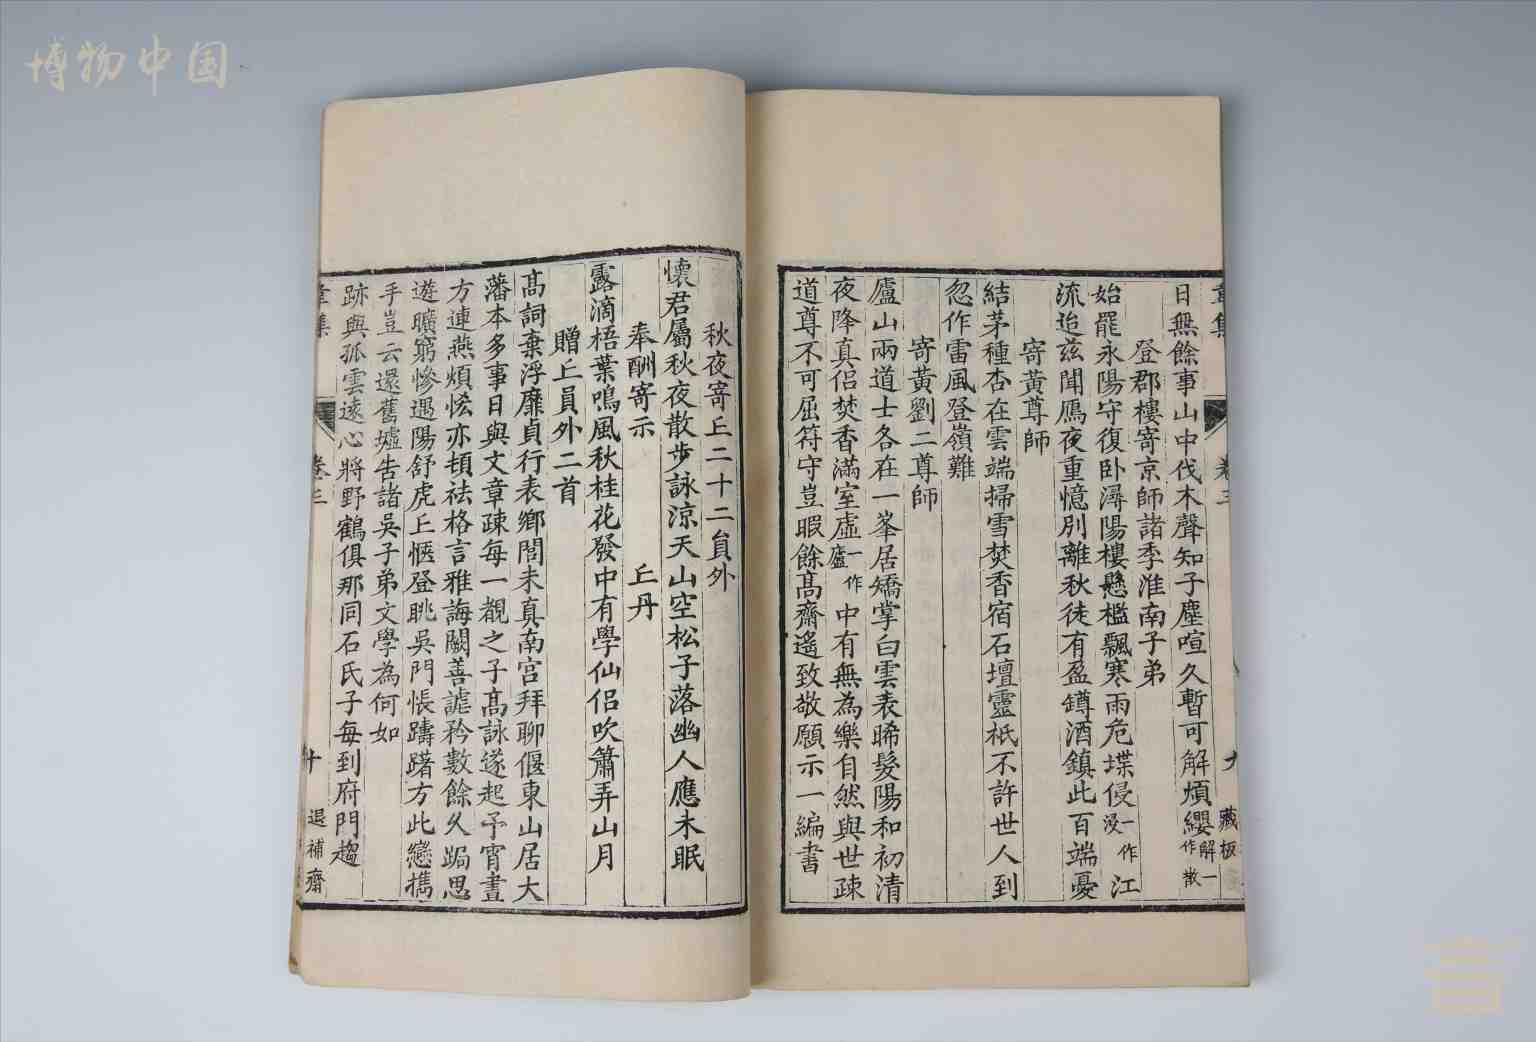 博物中国
韋集
卷三
九
藏板
日無餘事山中伐木聲知子塵喧久暫可解煩纓解一作散
登郡樓寄京師諸季淮南子弟
始罷永陽守復卧潯陽樓懸檻飄寒雨危堞侵一作浸江
流迨茲聞鴈夜重憶別離秋徒有盈罇酒鎮此百端憂
寄黃尊師
結茅種杏在雲端掃雪焚香宿石壇靈祇不許世人到
忽作雷風登嶺難
寄黃劉二尊師
廬山兩道士各在一峯居矯掌白雲表晞髮陽和初清
夜降真侶焚香滿室虛一作廬中有無為樂自然與世疎
道尊不可屈符守豈暇餘高齋遙致敬願示一編書
秋夜寄丘二十二員外
懷君屬秋夜散步詠涼天山空松子落幽人應未眠
奉酬寄示 丘丹
露滴梧葉鳴風秋桂花發中有學仙侶吹簫弄山月
贈丘員外二首
高詞棄浮靡貞行表鄉閭未真南宮拜聊偃東山居大
藩本多事日與文章疎每一覩之子高詠遂起予宵晝
方連燕煩恡亦頓祛格言雅誨闕善謔矜數餘久跼思
遊曠窮慘遇陽舒虎丘愜登眺吳門悵躊躇方此戀擕
手豈云還舊墟告諸吳子弟文學為何如
跡與孤雲遠心將野鶴俱那同石氏子每到府門趨
韋集
卷三
十
退補齋